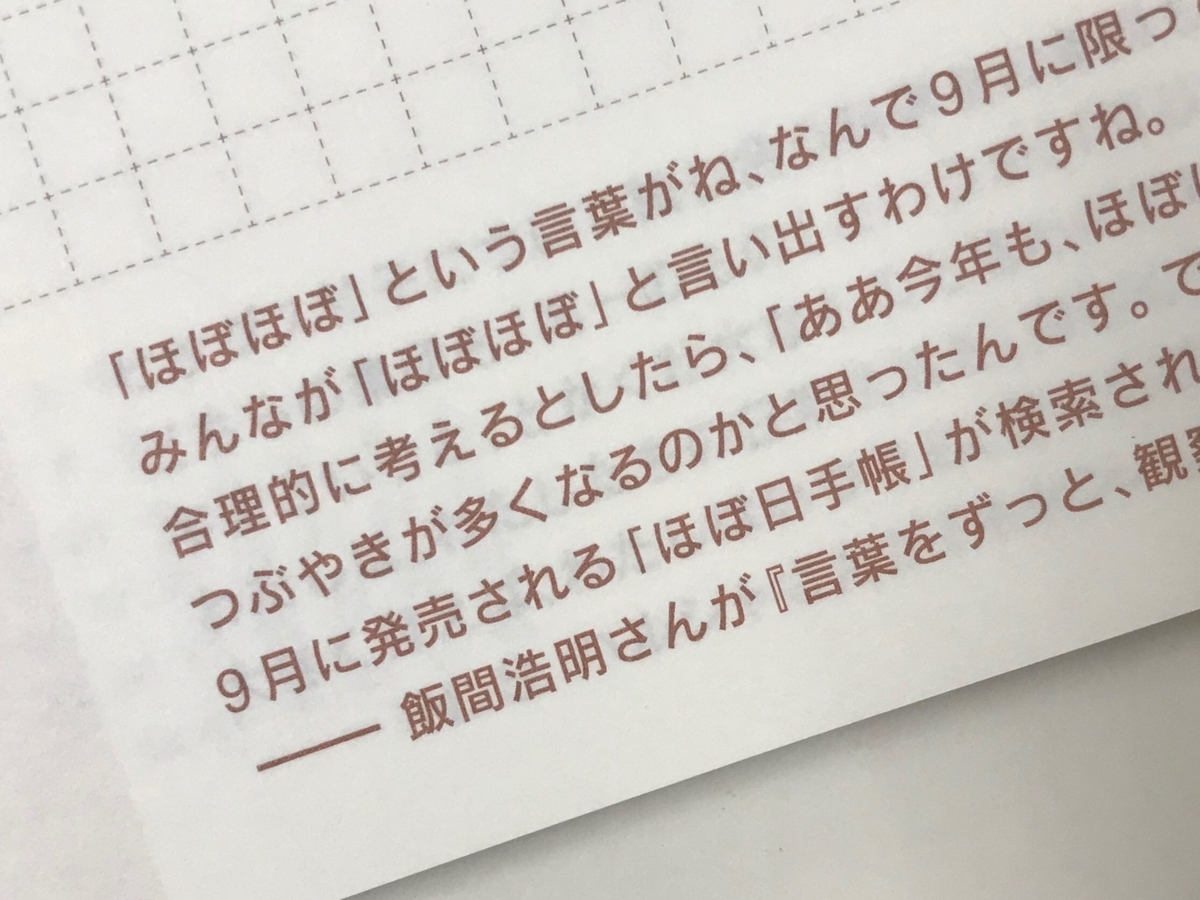 「ほぼほぼ」という言葉がね、なんで9月に限っ
みんなが「ほぼほぼ」と言い出すわけですね。
合理的に考えるとしたら、「ああ今年も、ほぼ
つぶやきが多くなるのかと思ったんです。で
9月に発売される「ほぼ日手帳」が検索され
―― 飯間浩明さんが『言葉をずっと、観察